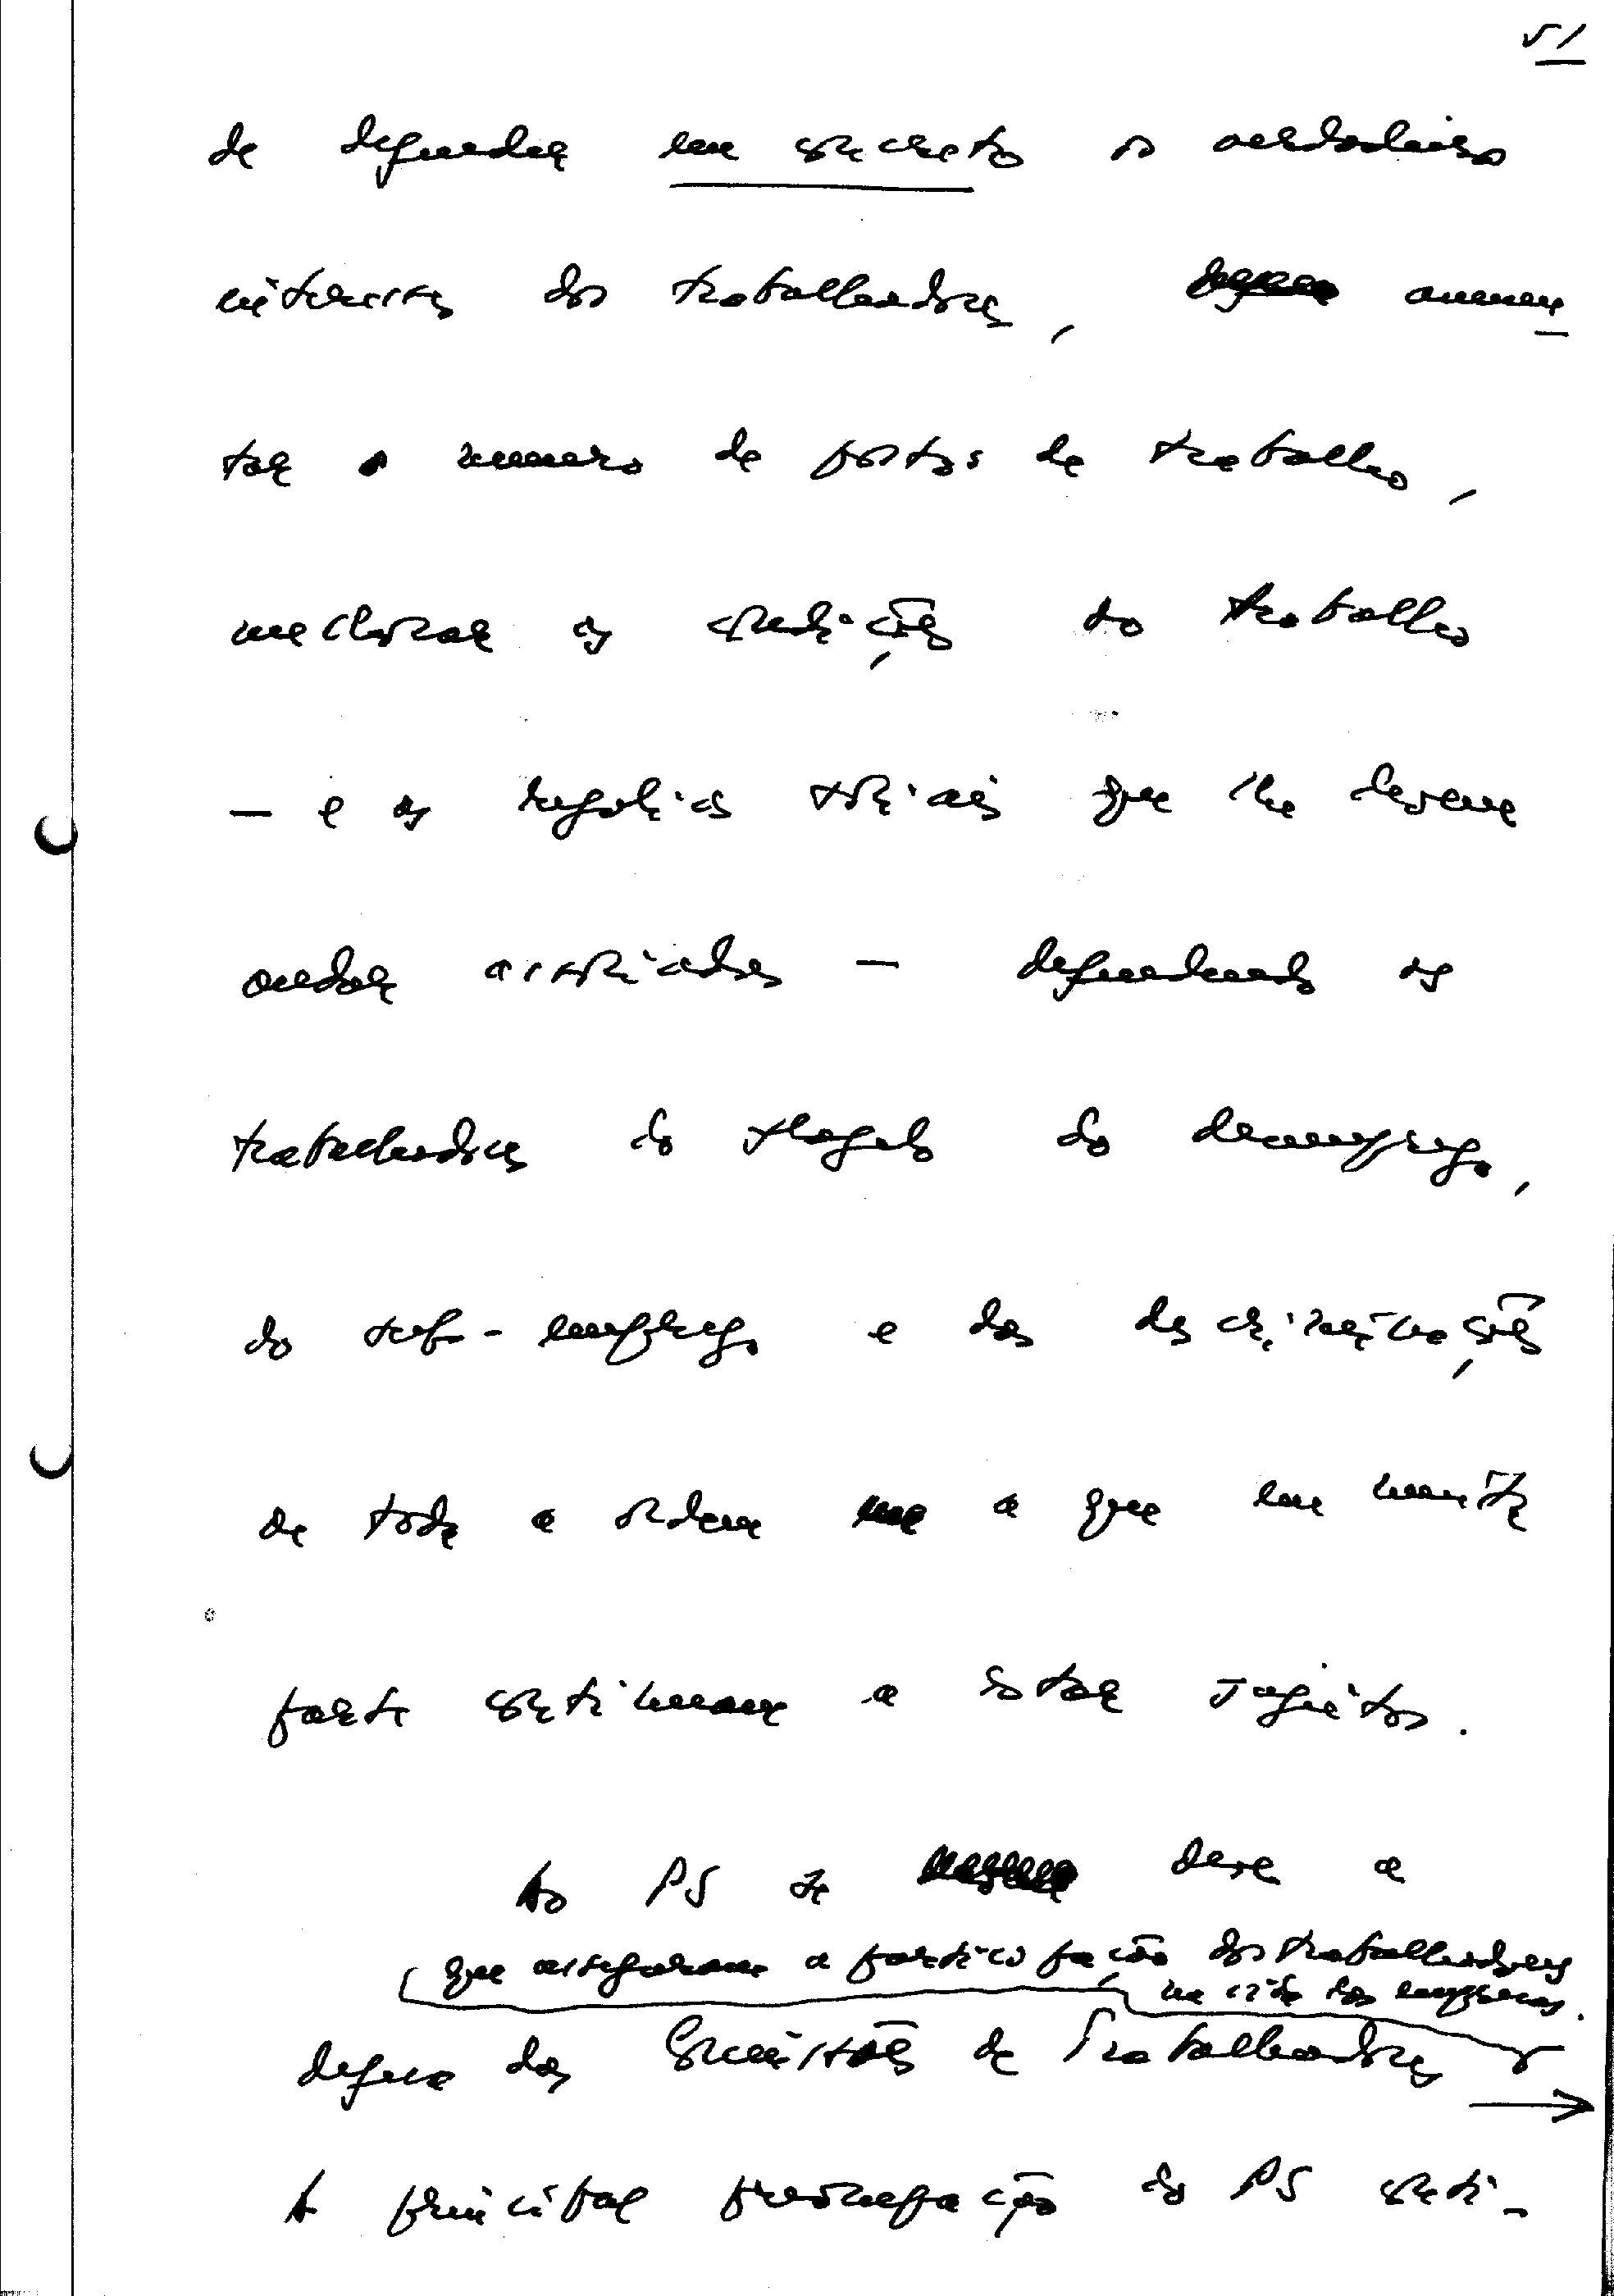 51
de defender em concreto os verdadeiros
interesses dos trabalhadores, aumen
tar o número de postos de trabalho,
melhorar as condições do trabalho
— e as regalias sociais que lhe devem
andar associadas — defendendo os
trabalhadores do flagelo do desemprego,
do sub-emprego e das discriminações
de toda a ordem a que em muita
parte continuam a estar sujeitos.
Ao PS se deve a
que asseguram a participação dos trabalhadores
na vida das empresas.
defesa das Comissões de Trabalhadores
A principal preocupação do PS conti-